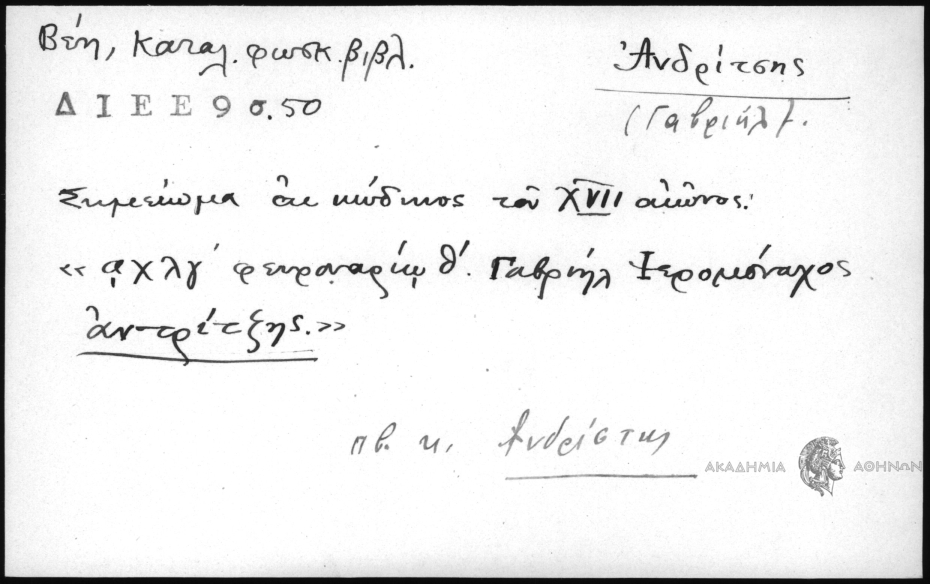 Βέη, Καταλ. φωσκ. βιβλ.
Ἀνδρίτσης
Δ Ι Ε Ε 9 σ. 50
(Γαβριήλ).
Σημείωμα ἐκ κώδικος τοῦ XVII αἰῶνος:
« αχλγ´ φευροναρίῳ θ´. Γαβριήλ Ἱερομόναχος
ἀντρίτζης. »
πβ. κ. Ἀνδρίστης
ΑΚΑΔΗΜΙΑ ΑΘΗΝΩΝ